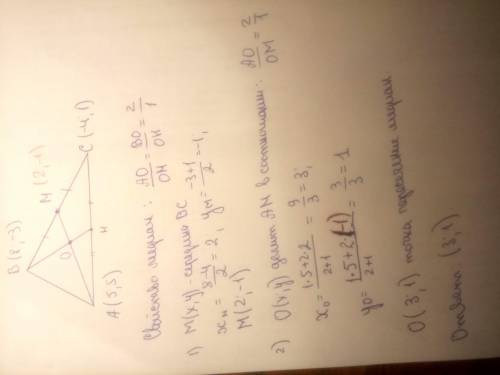 B (8,-3)
M (2,-1)
C (-4,1)
O
H
A (5,5)
Свойство медиан: AO/OM = BO/OH = 2/1
1) M(x,y) - середина BC
xм = (8-4)/2 = 2, yм = (-3+1)/2 = -1,
M(2;-1)
2) O(x,y) делит AM в соотношении: AO/OM = 2/1
x₀ = (1·5+2·2)/(2+1) = 9/3 = 3;
y₀ = (1·5+2·(-1))/(2+1) = 3/3 = 1
O(3;1) точка пересечения медиан
Ответ: (3;1)